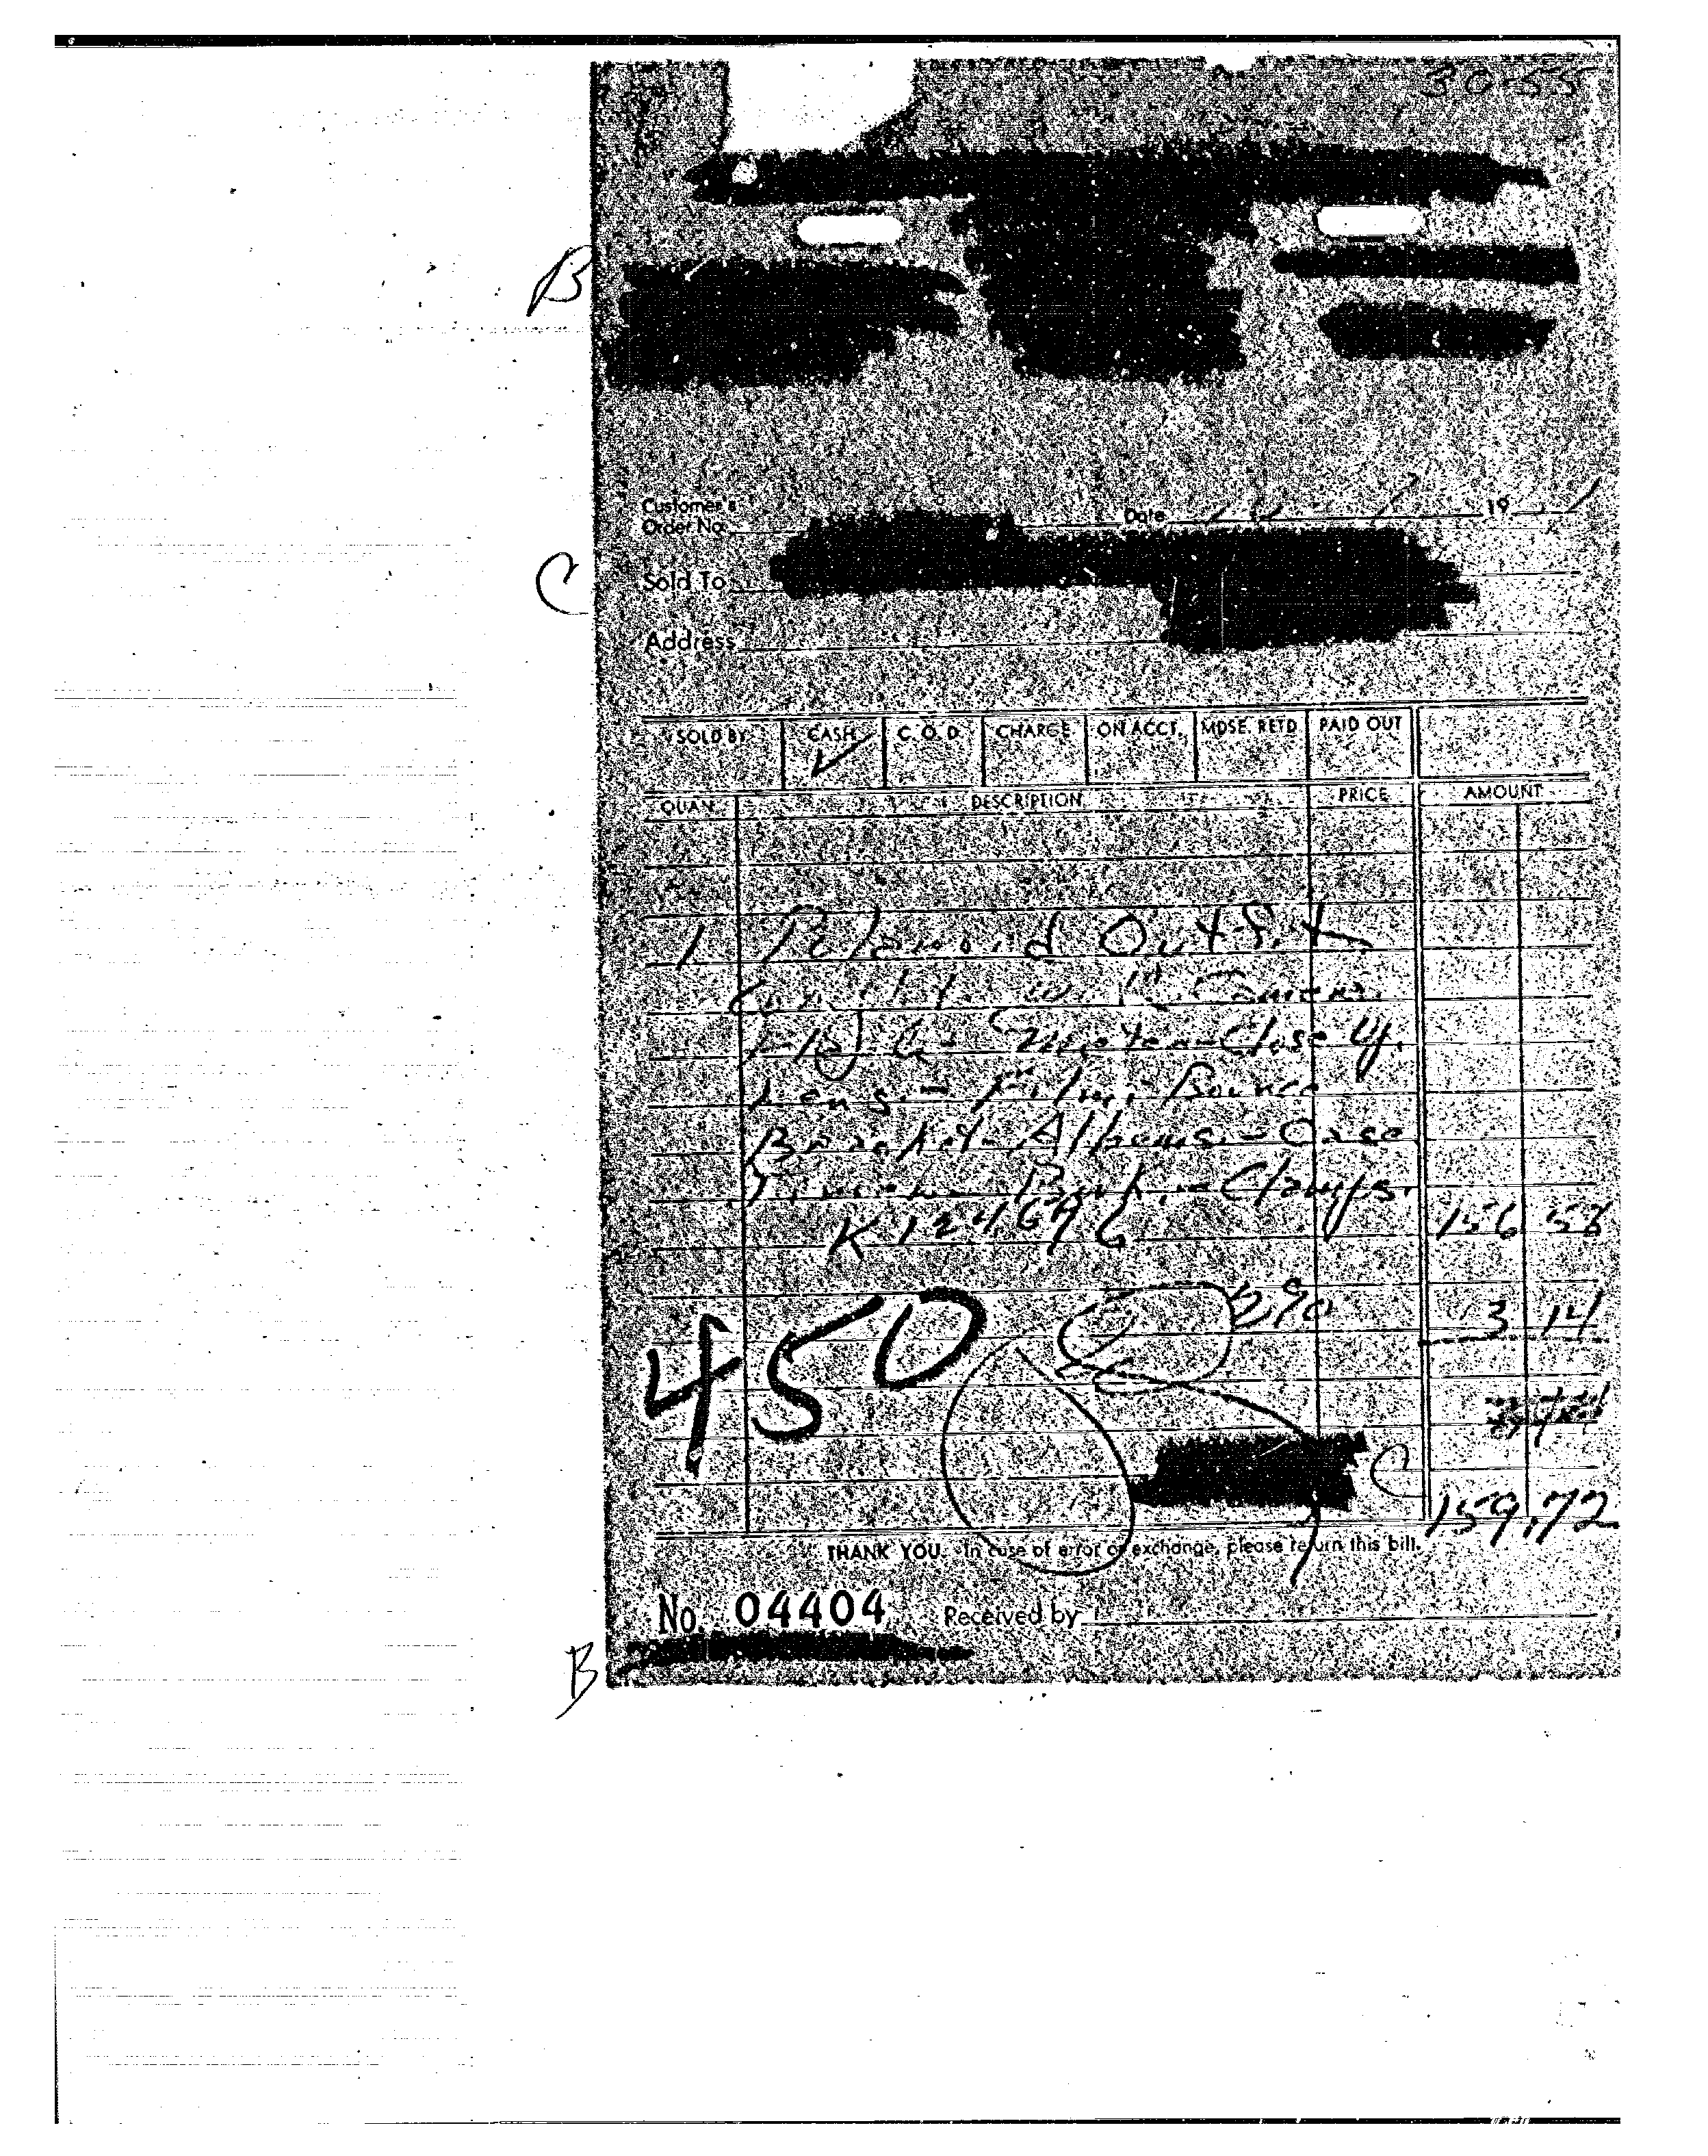 30-55
B
Customer's
Order No. Date 19
C
Sold To
Address
SOLD BY CASH C. O. D. CHARGE ON ACCT. MDSE. RETD PAID OUT
✓
QUAN. DESCRIPTION PRICE AMOUNT
1 Polaroid Outfit
Complete w/ Camera
Meter - Close Up
Lens - Film - Bounce
Bracket - Albums - Case
156 58
450 2% 3 14
C
159.72
THANK YOU. In case of error or exchange, please return this bill.
No. 04404 Received by
B